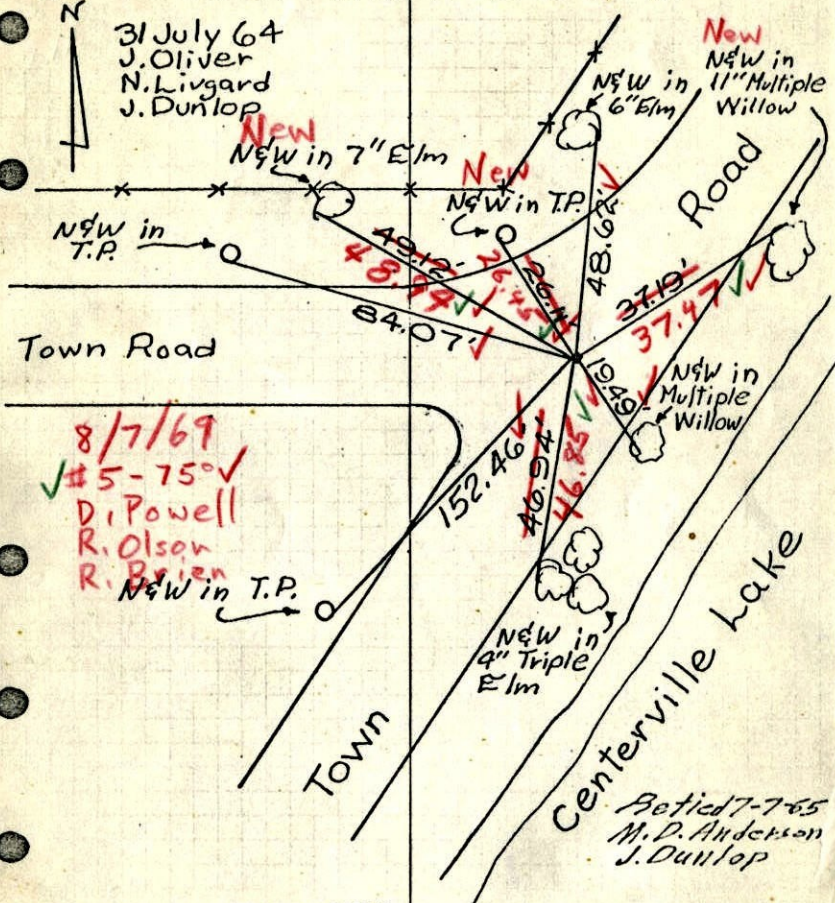 N
31 July 64
J. Oliver
N. Livgard
J. Dunlop
New
N&W in 7" Elm
New
N&W in T.P.
N&W in
6" Elm
New
N&W in
11" Multiple
Willow
N&W in
T.P.
49.12'
48.94
26.45
48.62'
37.19'
37.47
84.07'
Road
Town Road
19.49
N&W in
Multiple
Willow
152.46'
46.94'
46.85
8/7/69
#5-75°
D. Powell
R. Olson
R. Brien
N&W in T.P.
N&W in
4" Triple
Elm
Town
Centerville Lake
Retied 7-7-65
M.D. Anderson
J. Dunlop